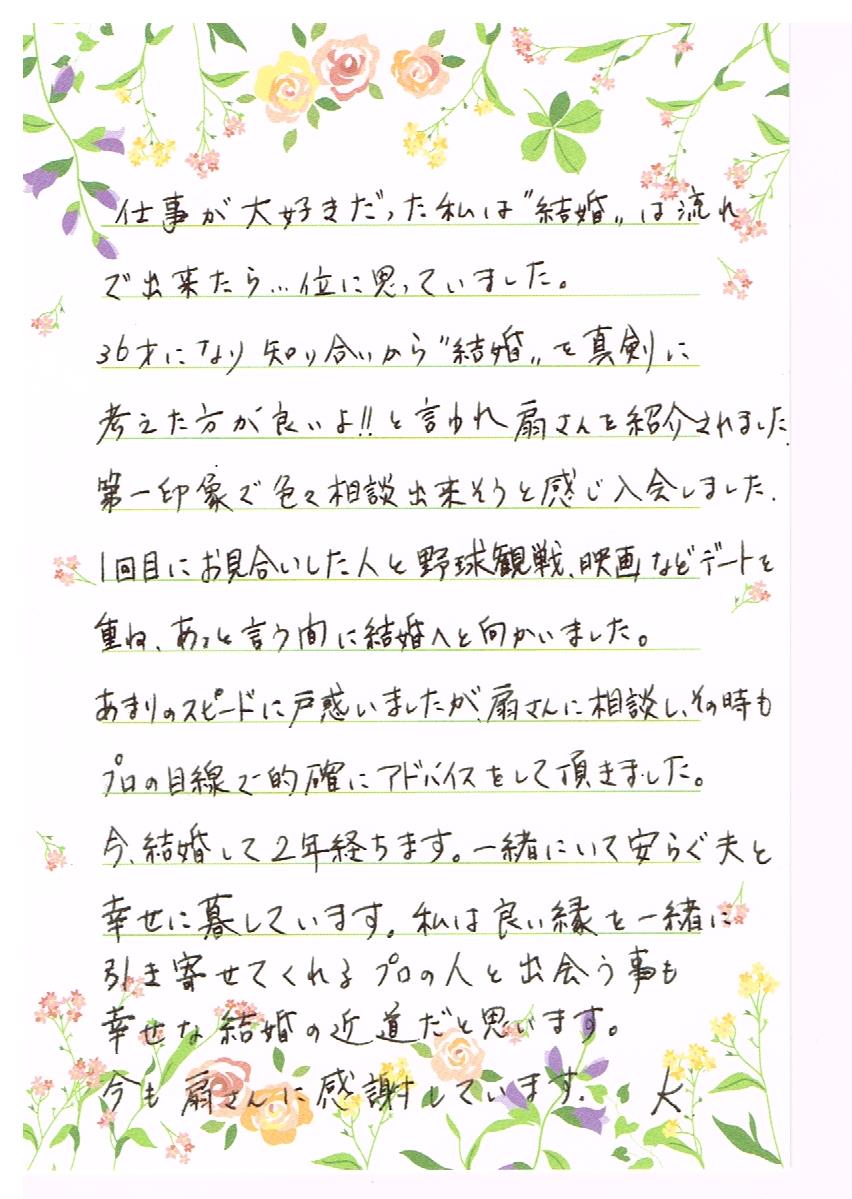 仕事が大好きだった私は〝結婚〟は流れ
で出来たら…位に思っていました。
36才になり知り合いから〝結婚〟を真剣に
考えた方が良いよ!!と言われ扇さんを紹介されました.
第一印象で色々相談出来そうと感じ入会しました.
1回目にお見合いした人と野球観戦、映画などデートを
重ね、あっと言う間に結婚へと向かいました。
あまりのスピードに戸惑いましたが、扇さんに相談し、その時も
プロの目線で的確にアドバイスをして頂きました。
今、結婚して2年経ちます。一緒にいて安らぐ夫と
幸せに暮しています。私は良い縁を一緒に
引き寄せてくれるプロの人と出会う事も
幸せな結婚の近道だと思います。
今も扇さんに感謝しています. K